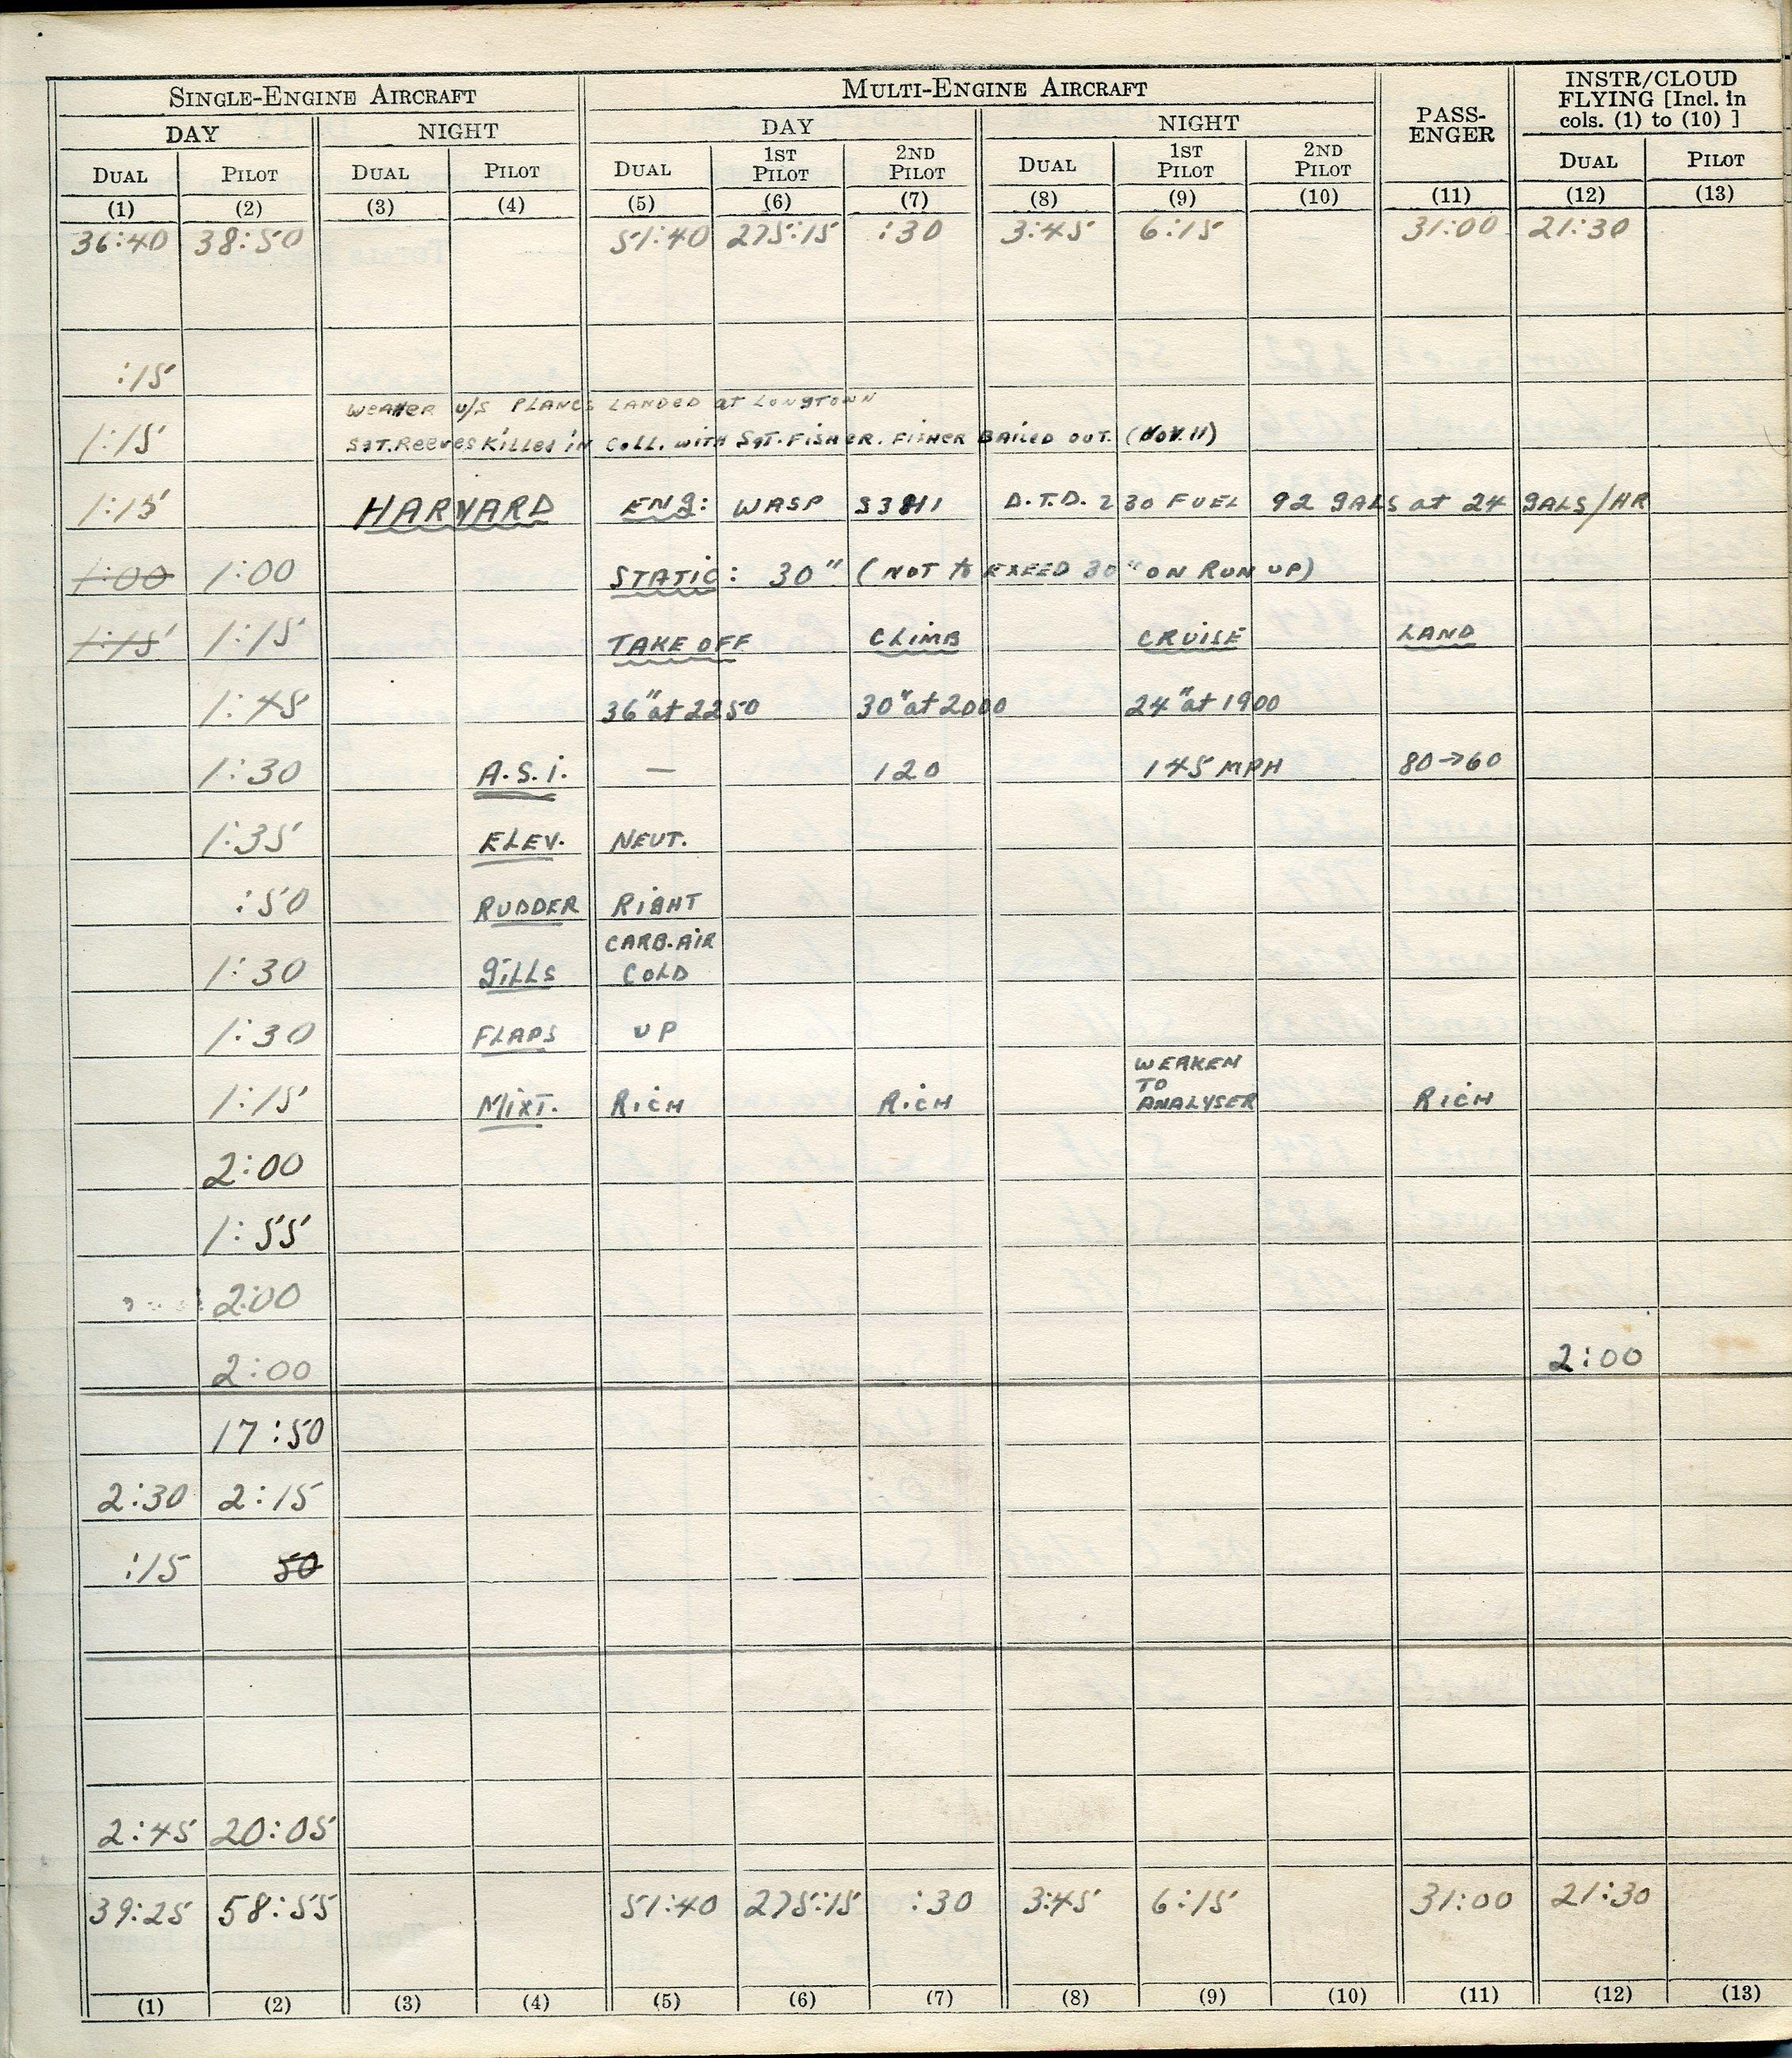 SINGLE-ENGINE AIRCRAFT MULTI-ENGINE AIRCRAFT PASS-ENGER INSTR/CLOUD FLYING [Incl. in cols. (1) to (10) ]
DAY NIGHT DAY NIGHT
DUAL PILOT DUAL PILOT DUAL 1ST PILOT 2ND PILOT DUAL 1ST PILOT 2ND PILOT DUAL PILOT
(1) (2) (3) (4) (5) (6) (7) (8) (9) (10) (11) (12) (13)
36:40 38:50 51:40 275:15 :30 3:45 6:15 31:00 21:30
:15
WEATHER U/S PLANES LANDED at LONGTOWN
1:15 SGT. Reeves Killed in COLL. WITH SGT. FISHER. FISHER BAILED OUT. (NOV. 11)
1:15 HARVARD ENG: WASP S3H1 D.T.D. 230 FUEL 92 GALS at 24 GALS/HR
1:00 1:00 STATIC: 30" (NOT to EXEED 30" ON RUN UP)
1:15 1:15 TAKE OFF CLIMB CRUISE LAND
1:45 36" at 2250 30" at 2000 24" at 1900
1:30 A.S.I. — 120 145 MPH 80→60
1:35 ELEV. NEUT.
:50 RUDDER RIGHT
CARB. AIR
1:30 GILLS COLD
1:30 FLAPS UP
WEAKEN
TO
1:15 MIXT. RICH RICH ANALYSER RICH
2:00
1:55
2:00
2:00 2:00
17:50
2:30 2:15
:15 50
2:45 20:05
39:25 58:55 51:40 275:15 :30 3:45 6:15 31:00 21:30
(1) (2) (3) (4) (5) (6) (7) (8) (9) (10) (11) (12) (13)